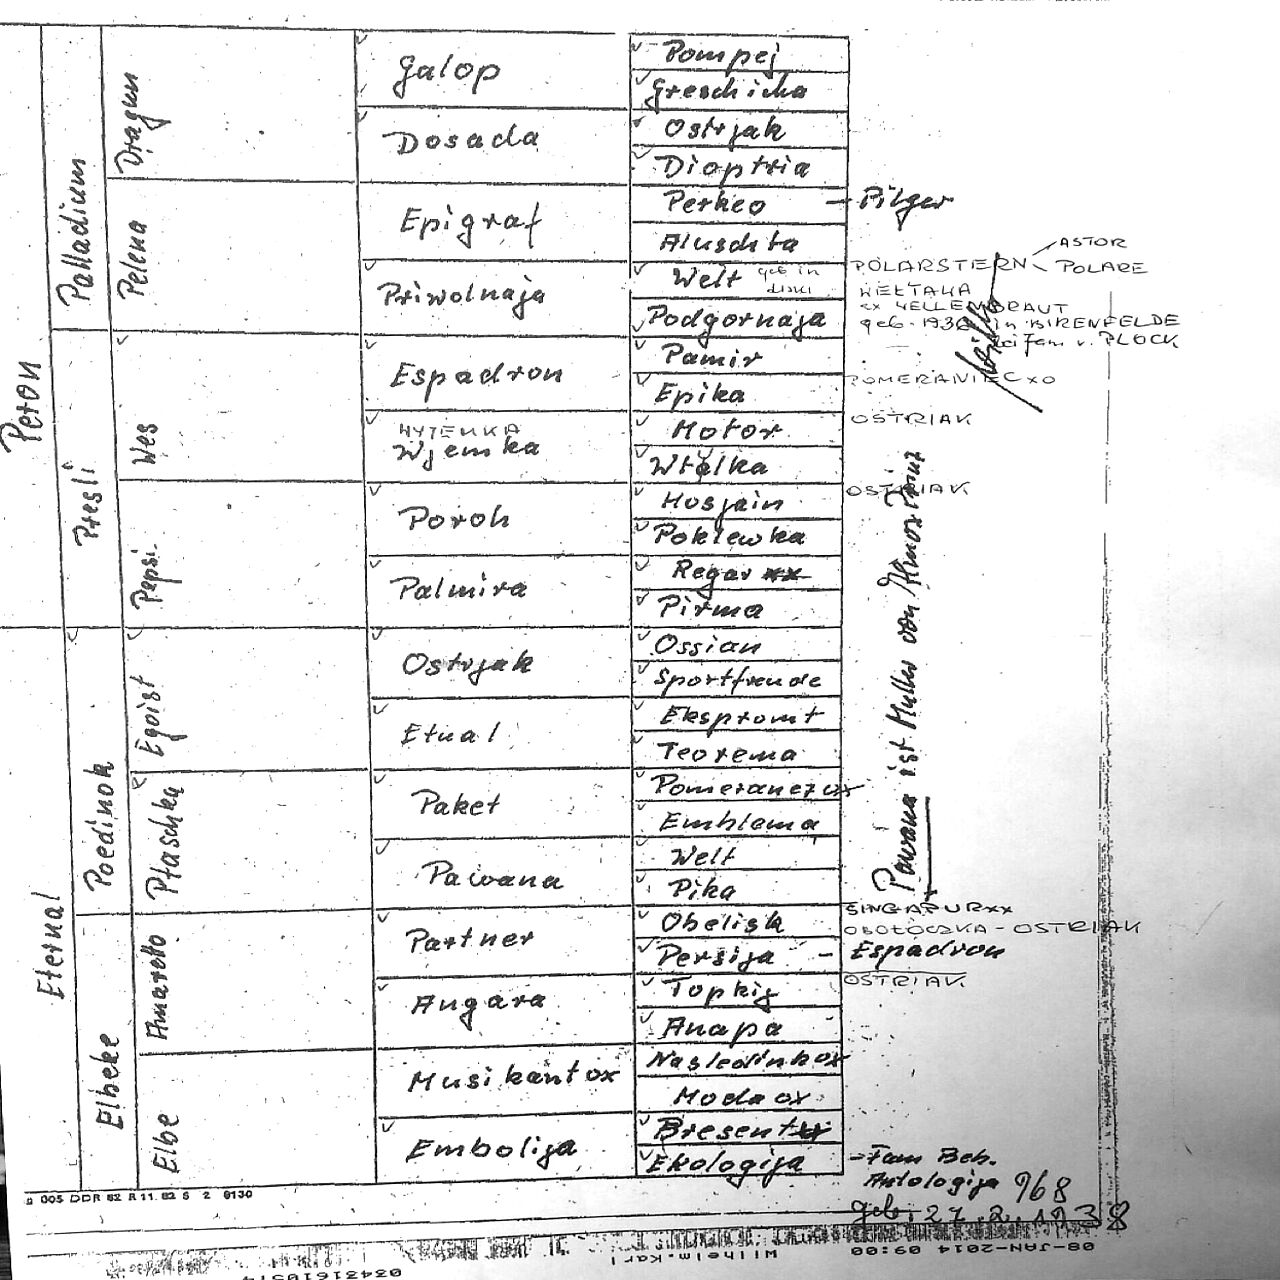 Peron
Palladium
Dragun
Galop
Pompej
Greschicha
Dosada
Ostrjak
Dioptria
Pelena
Epigraf
Perkeo - Pilger
Aluschta
Priwolnaja
Welt geb in
POLARSTERN ASTOR
POLARE
Podgornaja
WEŁTAWA
ex WELLENBRAUT
geb. 1936 in BIRENFELDE
bei Fam v. PLOCK
Presli
Wes
Espadron
Pamir
Epika
POMERANIEC xo
WYTEMKA
Wjemka
Motor
OSTRIAK
Wtalka
Pepsi
Poroh
Hosjain
OSTRIAK
Poklewka
Palmira
Regar xx
Pirma
Eternal
Poedinok
Egoist
Ostrjak
Ossian
Sportfreude
Etual
Ekspromt
Teorema
Ptaschka
Paket
Pomeranez ox
Emblema
Pawana
Welt
Pika
Pawana ist Mutter von
Elbeke
Amaretto
Partner
Obelisk
SINGAPUR xx
OBOŁOCZKA - OSTRIAK
Persija - Espadron
Angara
Topkij
OSTRIAK
Anapa
Elbe
Musikant ox
Nasledink ox
Moda ox
Embolija
Bresent
Ekologija
- Fam Beh.
Antologija 968
geb. 27.2.1938
005 DDR 82 R 11. 82 S 2 8130
08-JAN-2014 09:00
Wilhelm-Karl